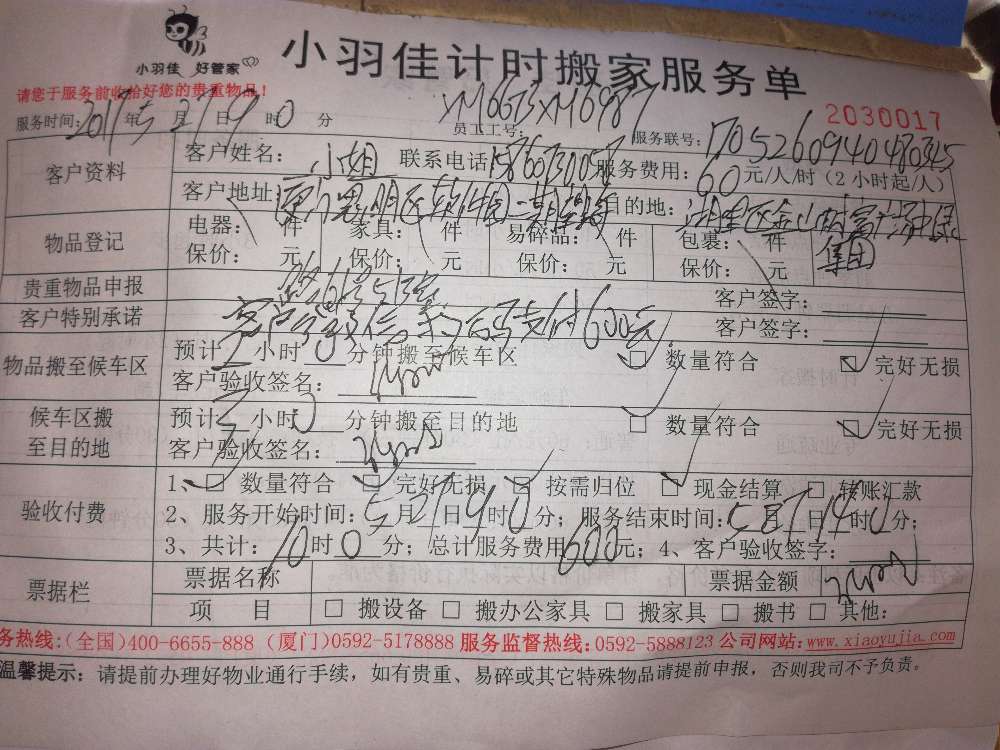 小羽佳 好管家
小羽佳计时搬家服务单
请您于服务前收拾好您的贵重物品！
2030017
服务时间：2017年5月27日9时0分 员工工号：XM0673XM0987 服务联号：170526094048345
客户资料 客户姓名：小姐 联系电话 服务费用：60元/人/时（2小时起/人）
客户地址： 目的地：
物品登记 电器： 件 家具： 件 易碎品： 件 包裹： 件
保价： 元 保价： 元 保价： 元 保价： 元 集团
贵重物品申报 客户签字：
客户特别承诺 客户 支付600元 客户签字：
物品搬至候车区 预计 小时 0 分钟搬至候车区 □ 数量符合 □ 完好无损
客户验收签名：
候车区搬至目的地 预计 小时 0 分钟搬至目的地 □ 数量符合 □ 完好无损
客户验收签名：
验收付费 1、□ 数量符合 □ 完好无损 □ 按需归位 □ 现金结算 □ 转账汇款
2、服务开始时间：5月27日9时0分；服务结束时间：5月27日14时0分；
3、共计：10时0分；总计服务费用600元；4、客户验收签字：
票据栏 票据名称 票据金额
项 目 □ 搬设备 □ 搬办公家具 □ 搬家具 □ 搬书 □ 其他：
务热线：（全国）400-6655-888 （厦门）0592-5178888 服务监督热线：0592-5888123 公司网站：www.xiaoyujia.com
温馨提示：请提前办理好物业通行手续，如有贵重、易碎或其它特殊物品请提前申报，否则我司不予负责。